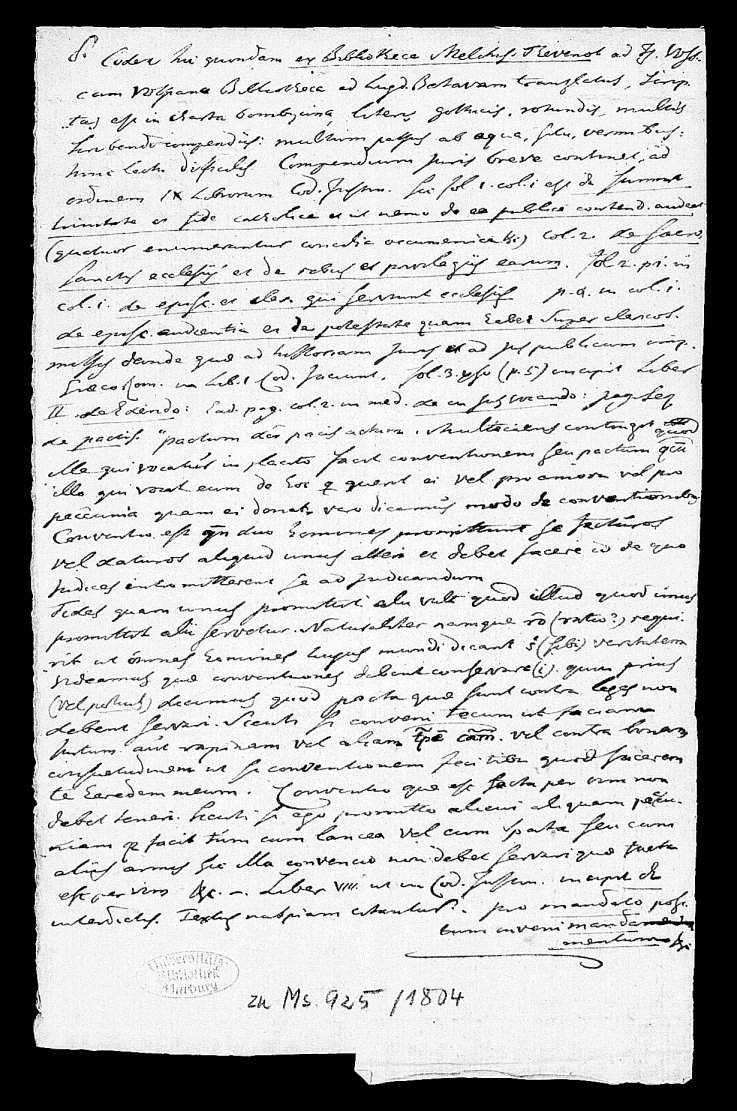 8. Codex hic quondam ex Bibliotheca Melchis. Tevenot ad Is. Voss.
cum Vossiana Bibliotheca ad Lugd. Batavam translatus, scrip-
tus est in charta bombycina, literis gothicis, rotundis, multis
scribendi compendiis: multum passus ab aqua, situ, vermibus:
hinc lectu difficilis. Compendium Juris breve continet, ad
ordinem IX Librorum Cod. Justin. Sic fol. 1. col. 1 est de Summa
trinitate et fide catholica et ut nemo de ea publice contend. audeat
(quatuor enumerantur concilia oecumenica) col. 2. de Sacro
sanctis ecclesiis et de rebus et privilegiis earum. fol. 2. pr. in
col. 1. de episc. et cler. qui serviunt ecclesiis p. a. in col. 1.
de episc. audientia et de potestate quam habet super clericos.
missis deinde quae ad historiam Juris et ad Jus publicum imp.
Graeco Rom. in Lib. 1 Cod. faciunt. fol. 3. (p. 5) incipit Liber
II. de Edendo: Ead. pag. col. 2. in med. de in jus vocando: pag. seq.
de pactis. "pactum dis pacis actum. Multociens contingit quod
ille qui vocatus in placito facit conventionem seu pactum
illo qui vocat eum de hoc querit ei vel pro amore vel pro
peccunia quam ei donat, vero dicamus modo de conventionibus
Conventio est qn duo homines promittunt se facturos
vel daturos aliquid unus alteri et debet facere id de quo
Judices intromitterent se ad Judicandum
Fides quam unus promittit alii vult quod illud quod unus
promittit alii servetur. Naturaliter namque ro (ratio?) requi-
rit ut omnes homines hujus mundi dicant s (sibi) veritatem
Videamus que conventiones debent conservare (i). quin prius
(vel potius) decimus quod pacta que sunt contra leges non
debent servari. Sicuti si conveni tecum ut faciam
furtum aut rapinam vel aliam vel contra bonam
consuetudinem ut si conventionem feci tibi quod facerem
te heredem meum. Conventio que est facta per vim non
debet teneri. Sicuti si ego promitto alicui aliquam pecu-
niam facit cum lancea vel cum spata seu cum
aliis armis sic illa convencio non debet servari que facta
est per vim &c. – Liber VIII. ut in Cod. Justin. incipit de
interdictis. Textus nuspiam citantur. pro mandato posi-
tum inveni
mentum
Universitäts
Bibliothek
Marburg
zu Ms. 925 /1804